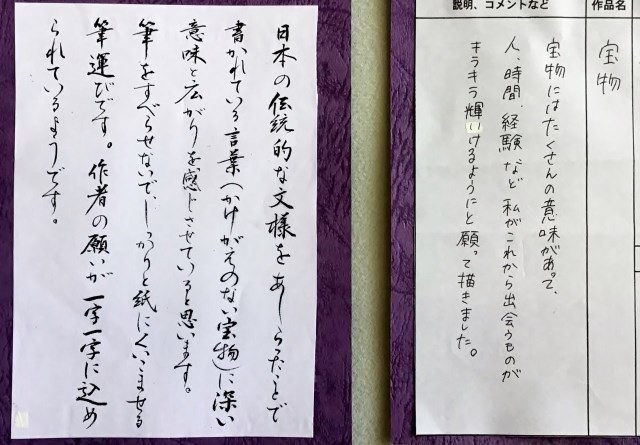 説明、コメントなど
作品名
宝物
宝物にはたくさんの意味があって、
人、時間、経験など私がこれから出会うものが
キラキラ輝いけるようにと願って描きました。
日本の伝統的な文様をあしらったことで
書かれている言葉(かけがえのない宝物)に深い
意味と広がりを感じさせていると思います。
筆をすべらせないで、しっかりと紙にくいこませる
筆運びです。作者の願いが一字一字に込め
られているようです。